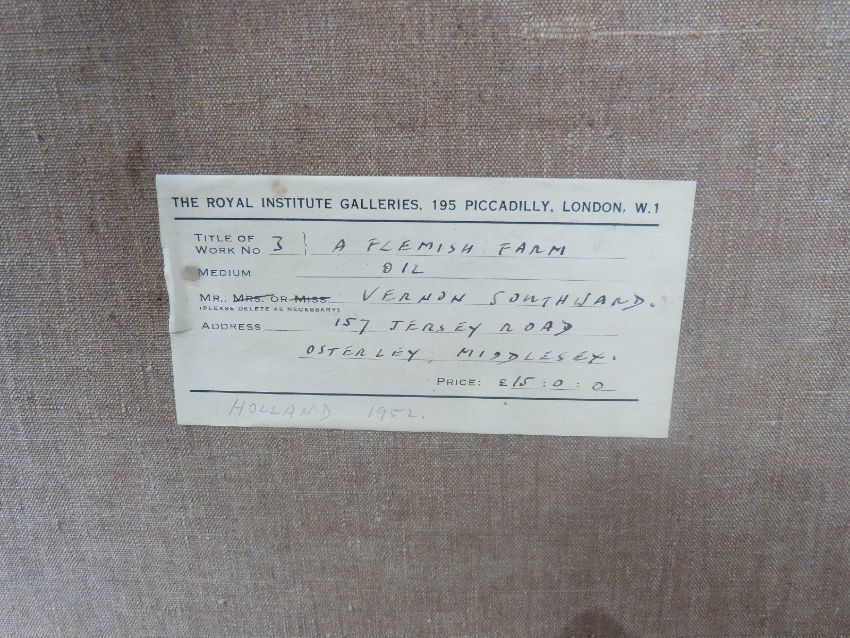 THE ROYAL INSTITUTE GALLERIES, 195 PICCADILLY, LONDON, W.1
TITLE OF
WORK NO 3 A FLEMISH FARM
MEDIUM OIL
MR., MRS. OR MISS VERNON SOUTHWARD.
(PLEASE DELETE AS NECESSARY)
ADDRESS 157 JERSEY ROAD
OSTERLEY, MIDDLESEX.
PRICE: £15:0:0
HOLLAND 1952.